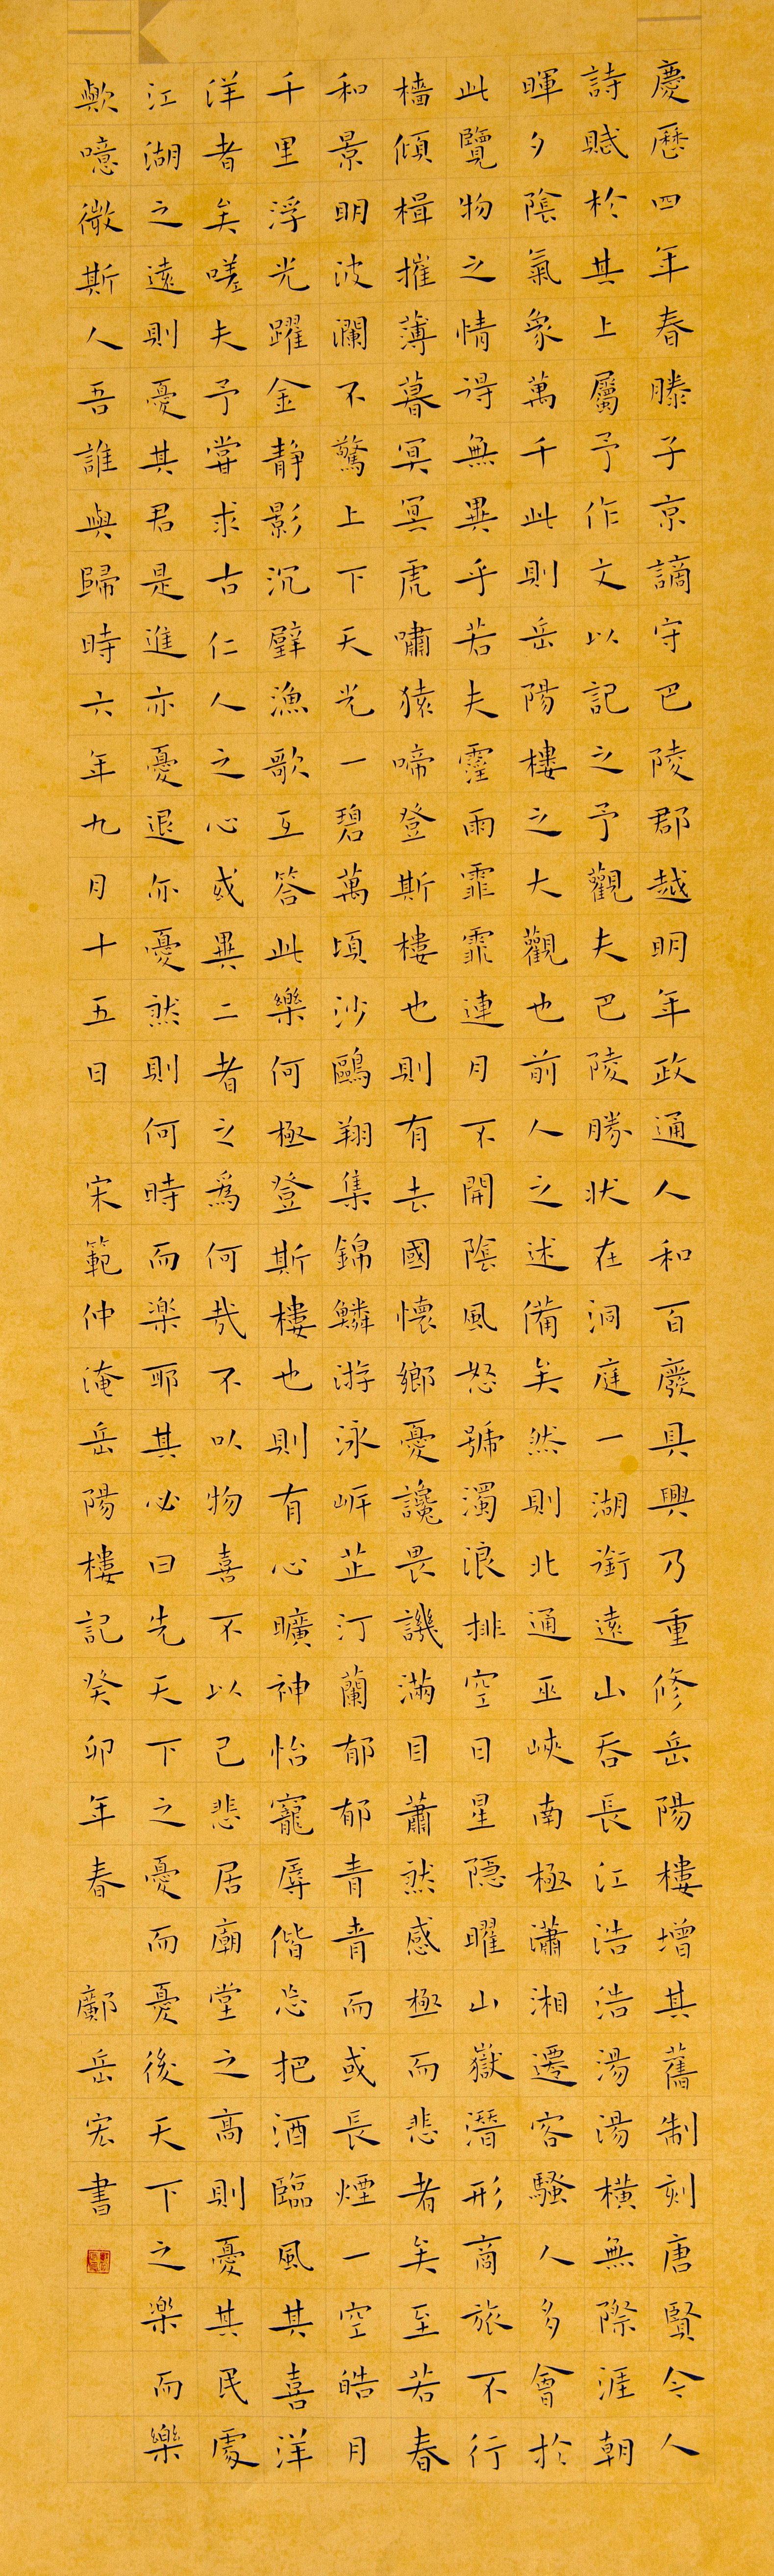 慶曆四年春滕子京謫守巴陵郡越明年政通人和百廢具興乃重修岳陽樓增其舊制刻唐賢今人
詩賦於其上屬予作文以記之予觀夫巴陵勝狀在洞庭一湖銜遠山吞長江浩浩湯湯橫無際涯朝
暉夕陰氣象萬千此則岳陽樓之大觀也前人之述備矣然則北通巫峽南極瀟湘遷客騷人多會於
此覽物之情得無異乎若夫霪雨霏霏連月不開陰風怒號濁浪排空日星隱曜山嶽潛形商旅不行
檣傾楫摧薄暮冥冥虎嘯猿啼登斯樓也則有去國懷鄉憂讒畏譏滿目蕭然感極而悲者矣至若春
和景明波瀾不驚上下天光一碧萬頃沙鷗翔集錦鱗游泳岸芷汀蘭郁郁青青而或長煙一空皓月
千里浮光躍金靜影沉璧漁歌互答此樂何極登斯樓也則有心曠神怡寵辱偕忘把酒臨風其喜洋
洋者矣嗟夫予嘗求古仁人之心或異二者之為何哉不以物喜不以己悲居廟堂之高則憂其民處
江湖之遠則憂其君是進亦憂退亦憂然則何時而樂耶其必曰先天下之憂而憂後天下之樂而樂
歟噫微斯人吾誰與歸時六年九月十五日 宋範仲淹岳陽樓記癸卯年春 鄺岳宏書